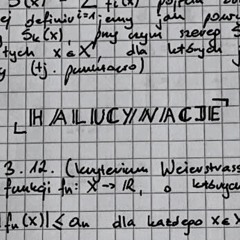 S(x) = Σ fi(x) pojęcia
i=1
definiujemy jak
Sk(x), przy czym szereg
tych x∈X, dla których
(tj. punktowo)
HALUCYNACJE
3.12. (kryterium Weierstrass
funkcji fn: X→ℝ, o których
|fn(x)| ≤ an dla każdego x∈X